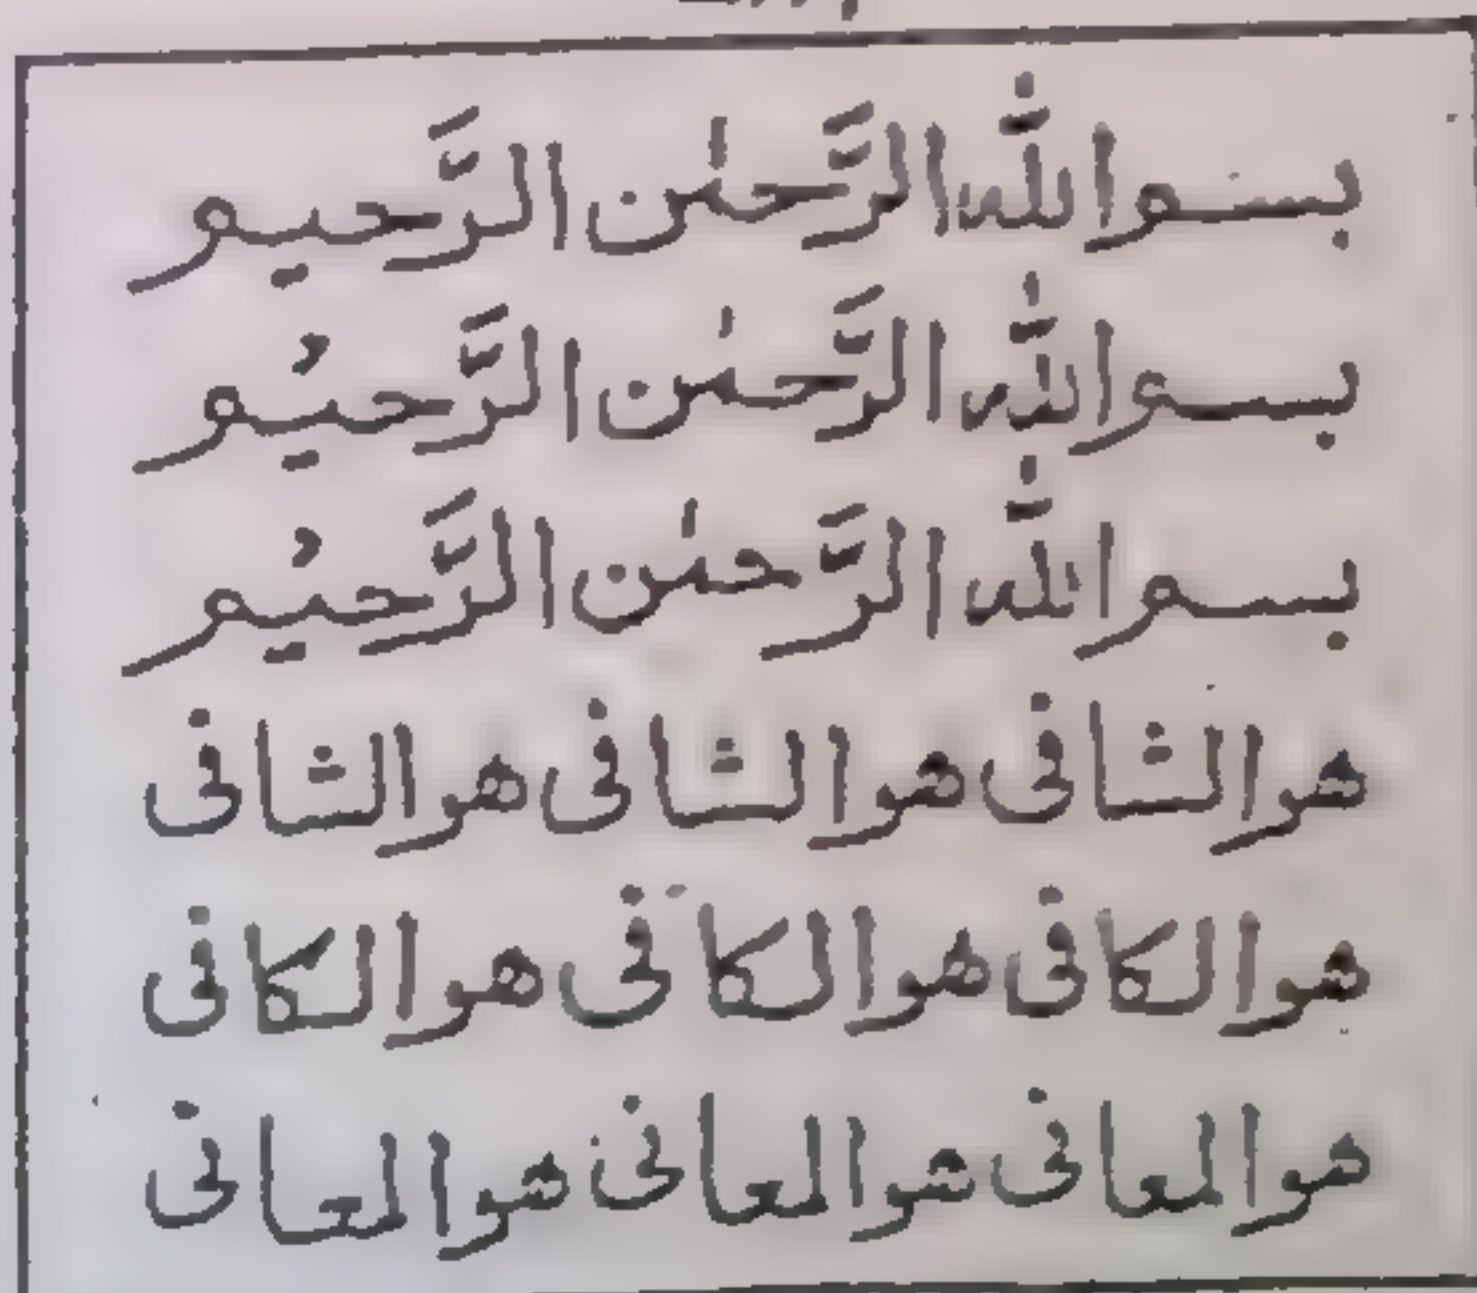 بسم الله الرَّحمٰن الرَّحیم
بسم الله الرَّحمٰن الرَّحیْم
بسم الله الرَّحمٰن الرَّحیْم
هو الشافی هو الشافی هو الشافی
هو الکافی هو الکافی هو الکافی
هو المعافی هو المعافی هو المعافی